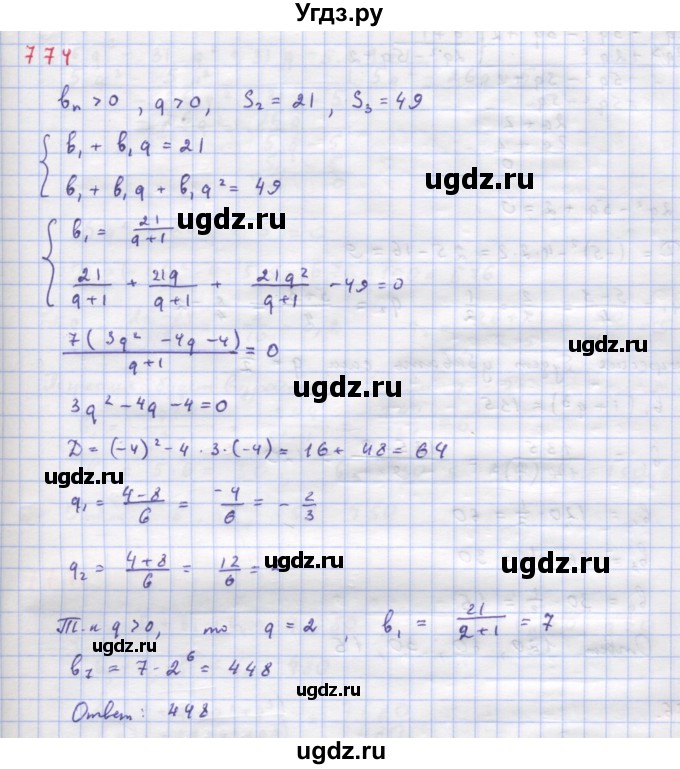 Угдз.ру
774
bₙ > 0 , q > 0, S₂ = 21 , S₃ = 49
ugdz.ru
{ b₁ + b₁q = 21
b₁ + b₁q + b₁q² = 49
ugdz.ru
ugdz.ru
{ b₁ = 21/(q+1)
21/(q+1) + 21q/(q+1) + 21q²/(q+1) - 49 = 0
7(3q² - 4q - 4)/(q+1) = 0
ugdz.ru
ugdz.ru
3q² - 4q - 4 = 0
D = (-4)² - 4 · 3 · (-4) = 16 + 48 = 64
ugdz.ru
q₁ = (4-8)/6 = -4/6 = -2/3
ugdz.ru
q₂ = (4+8)/6 = 12/6 =
ugdz.ru
ugdz.ru
Т.к q > 0, то q = 2 , b₁ = 21/(2+1) = 7
ugdz.ru
b₇ = 7 · 2⁶ = 448
ugdz.ru
Ответ: 448
ugdz.ru
ugdz.ru